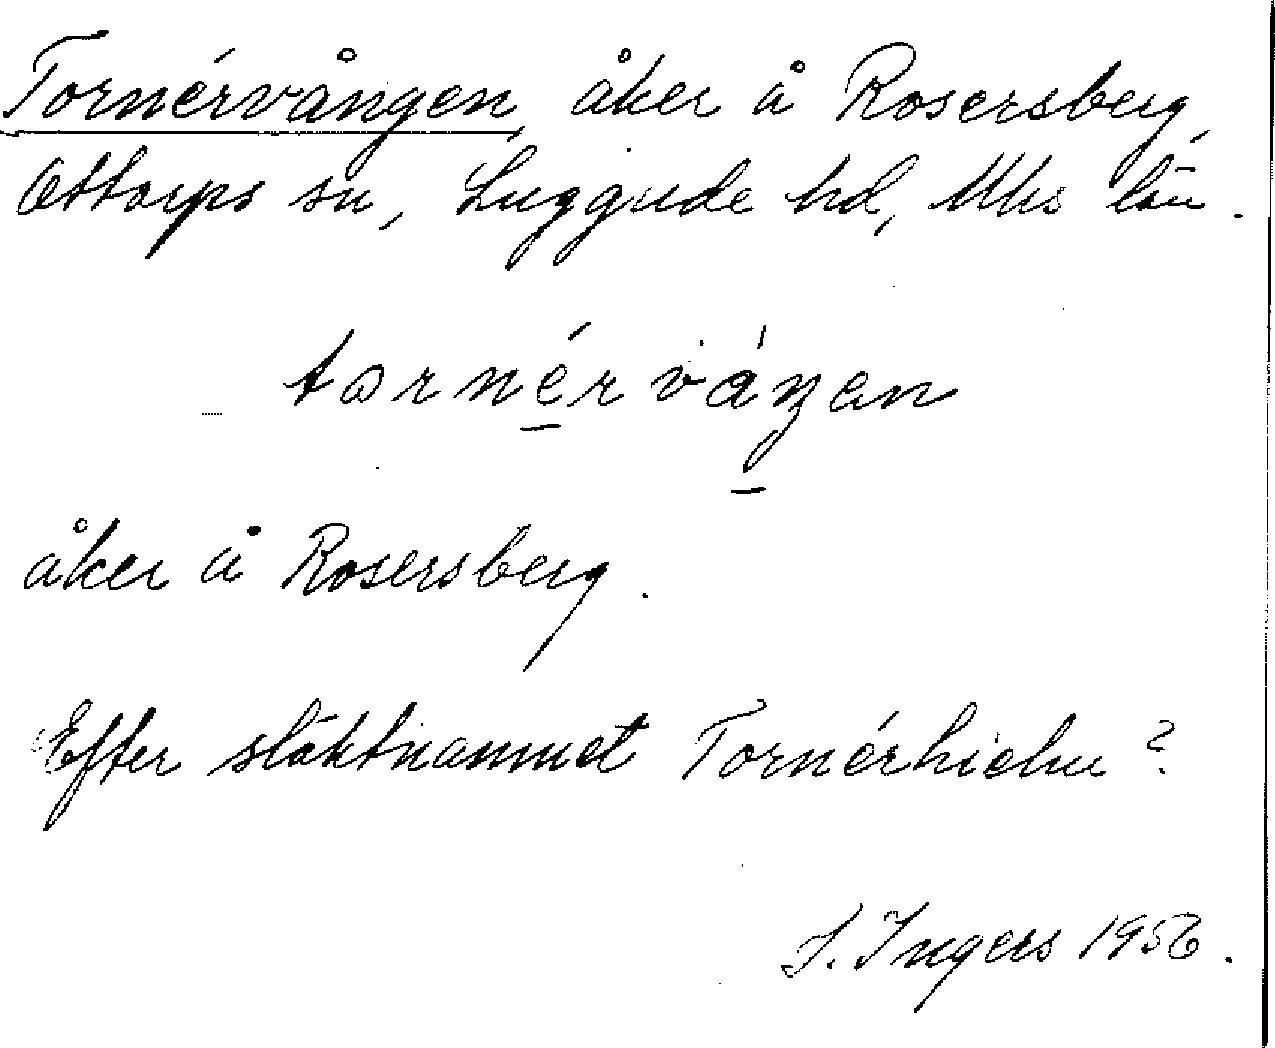 Tornérvången, åker å Rosersberg,
Ottarps sn, Luggude hd, Mhs län.
tornérváŋen
åker å Rosersberg.
Efter släktnamnet Tornérhielm?
I. Ingers 1956.